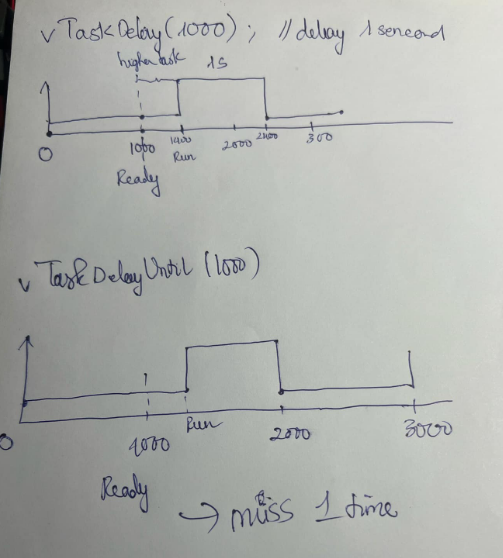 vTaskDelay(1000); // delay 1 sencond
higher task 1s
0 1000 1400 2000 2400 300
Run
Ready
vTaskDelayUntil (1000)
0 1000 Run 2000 3000
Ready
→ miss 1 time